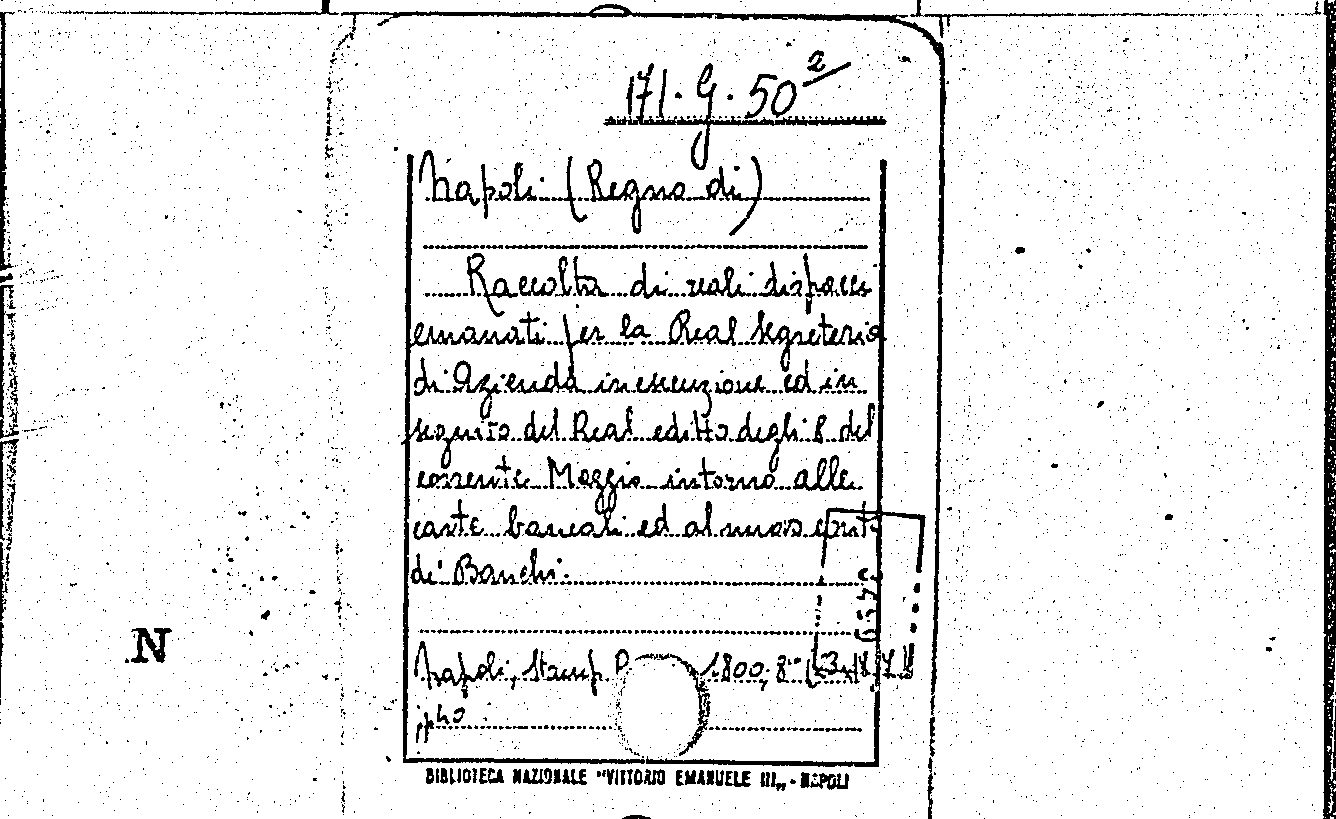 171. G. 50²
Napoli (Regno di)
Raccolta di reali dispacci
emanati per la Real Segreteria
di Azienda in esecuzione ed in
seguito del Real editto degli 8 del
corrente Maggio intorno alle
carte bancali ed al nuovo
di Banchi.
Napoli, Stamp. 1800, 8°
N
BIBLIOTECA NAZIONALE "VITTORIO EMANUELE III„ - NAPOLI